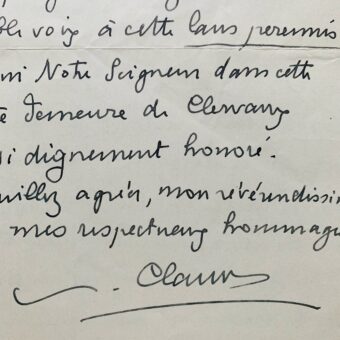 ble voix à cette laus perennis
Notre Seigneur dans cette
demeure de Clervaux
si dignement honoré.
uillez agréer, mon révérendissim
mes respectueux hommages